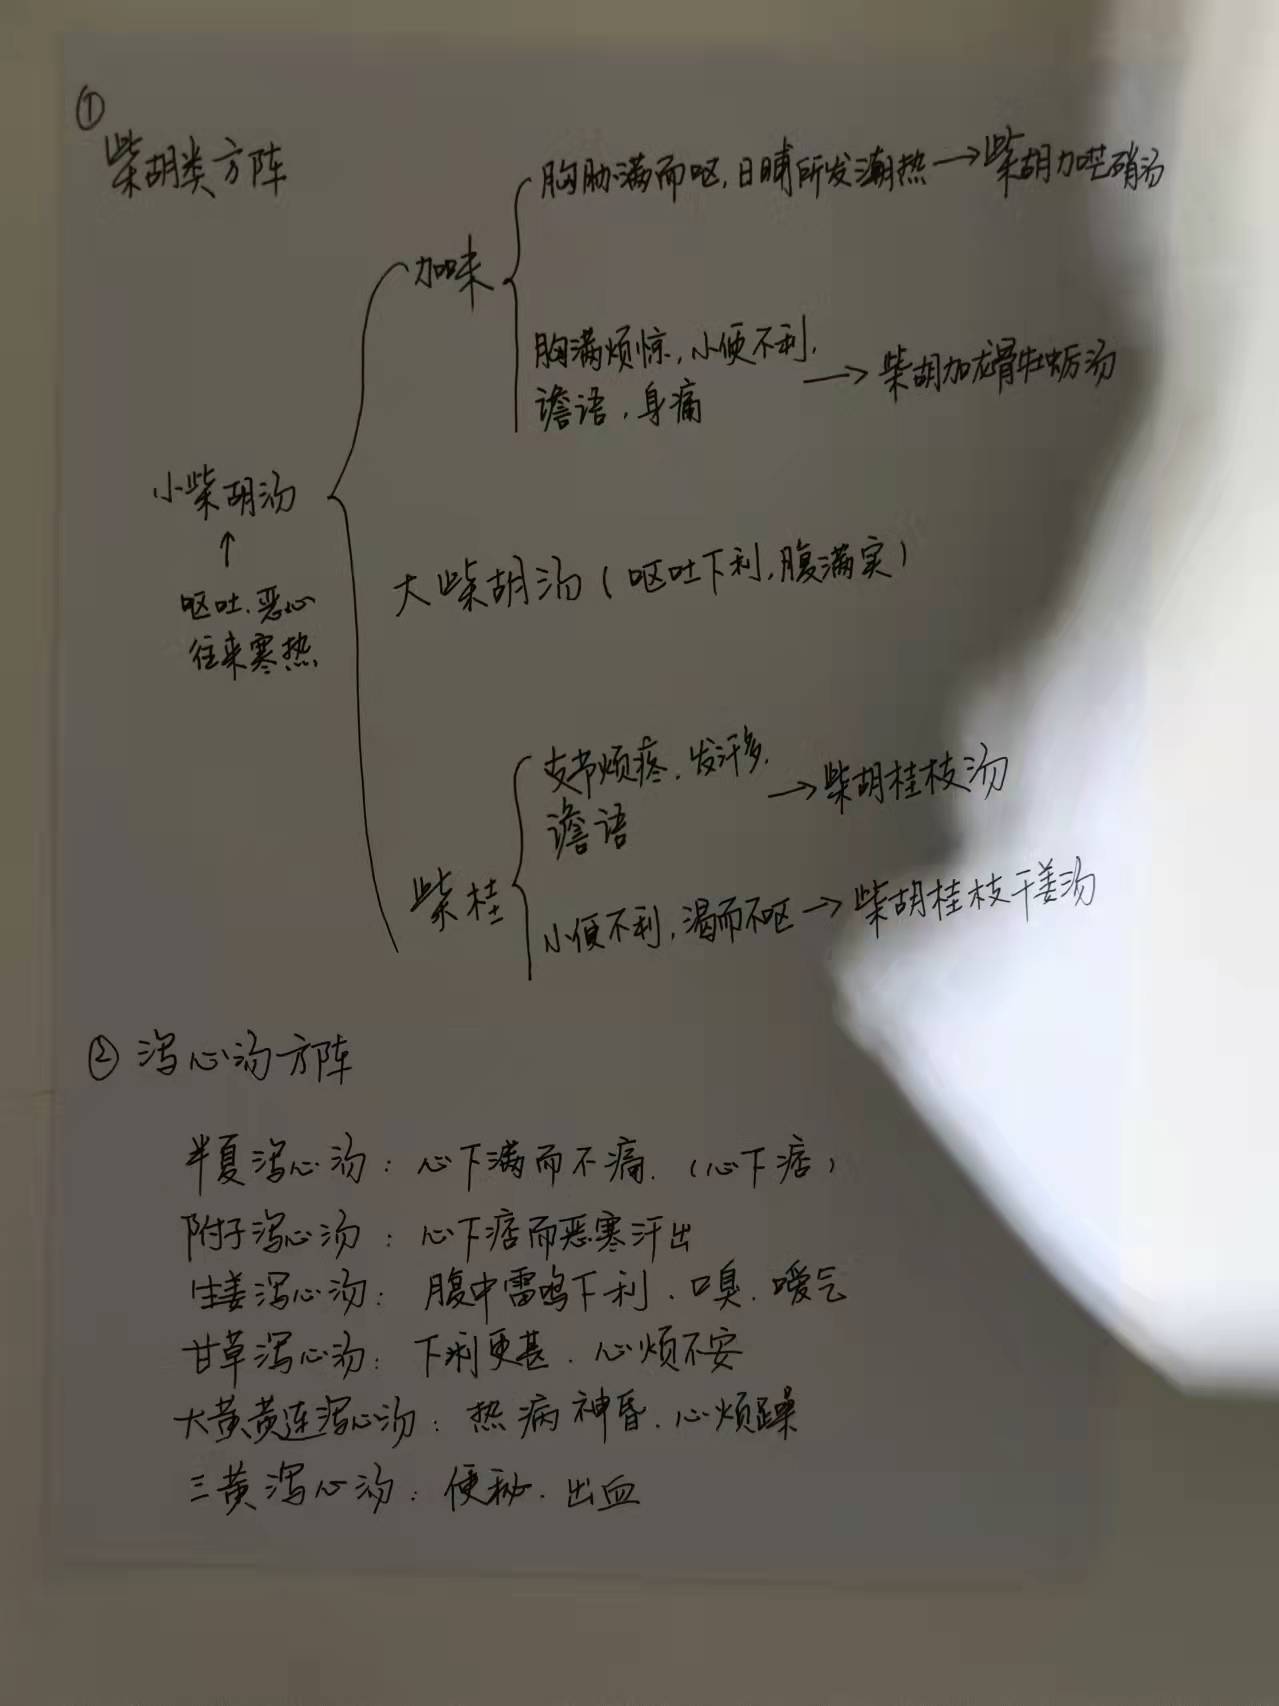 ①
柴胡类方阵
胸胁满而呕，日晡所发潮热→柴胡加芒硝汤
加味
胸满烦惊，小便不利，
谵语，身痛
→柴胡加龙骨牡蛎汤
小柴胡汤
↑
呕吐、恶心
往来寒热
大柴胡汤（呕吐下利，腹满实）
支节烦疼，发汗多，
谵语
→柴胡桂枝汤
柴桂
小便不利，渴而不呕→柴胡桂枝干姜汤
② 泻心汤方阵
半夏泻心汤：心下满而不痛．（心下痞）
附子泻心汤：心下痞而恶寒汗出
生姜泻心汤：腹中雷鸣下利、口臭、嗳气
甘草泻心汤：下利更甚、心烦不安
大黄黄连泻心汤：热病神昏、心烦躁
三黄泻心汤：便秘、出血